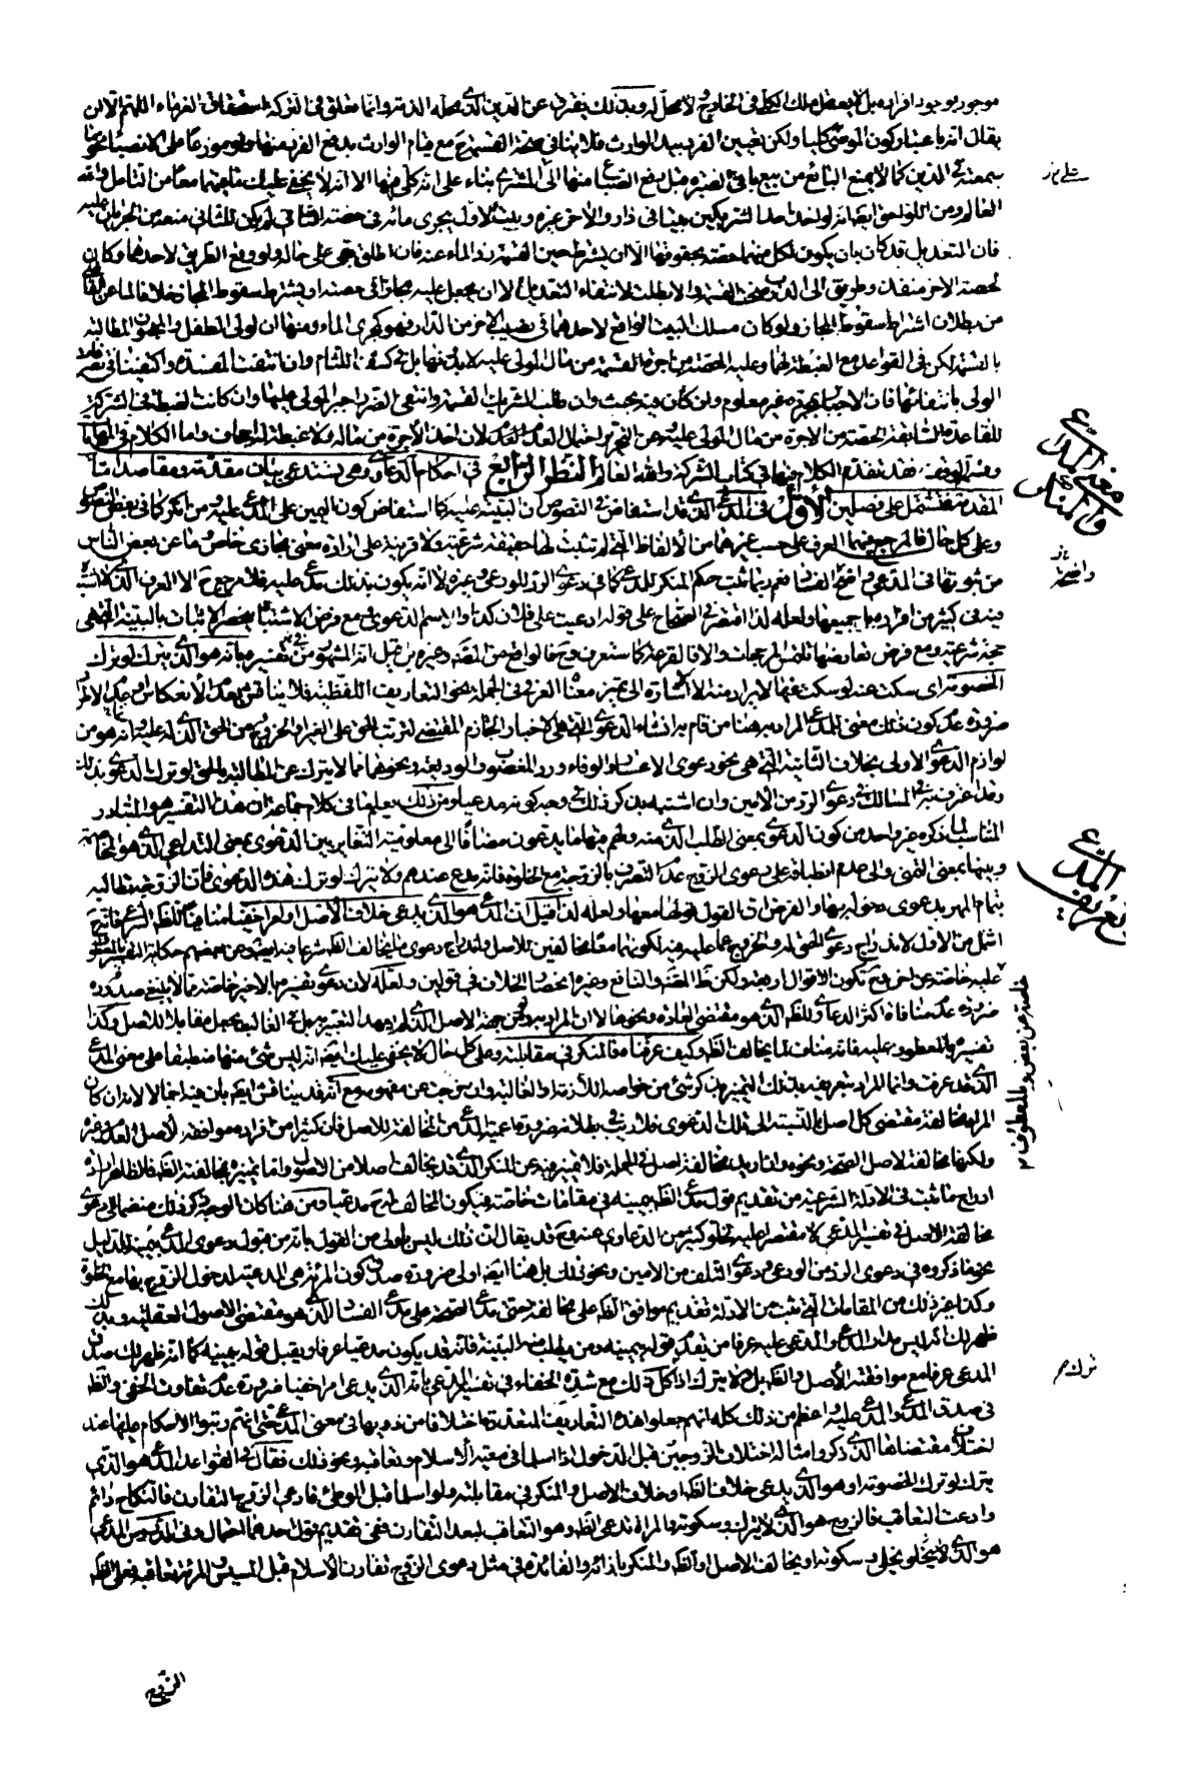 موجود بوجود افراده بل لا بعض ملك الكلى فى الخارج لا محل له وبذلك يفترق عن الدين الذى محله الذمة وانما معلق فى التركة استحقاق الغرماء اللهم الا ان
يقال انه باعتبار كون الموصى كليا ولكن تعيين الفرد بيد الوارث فلا ينافى صحة القسمة مع قيام الوارث بدفع الفرد منها ولو موزعا على الانصباء نحو ما
سمعته فى الدين كما لا يمنع البائع من بيع باقى الصبرة قبل دفع الصاع منها الى المشترى بناء على انه كلى منها الا انه لا يخفى عليك ما فيهما معا من التأمل والله
العالم ومن اللواحق ايضا انه لو اخذ احد الشريكين بيتا فى دار والاخر غيره وبيت الاول يجرى مائه فى حصة الثانى لم يكن للثانى منعه من الجريان عليه
فان التعديل قد كان بان يكون لكل منهما حصته بحقوقها الا ان يشترط حين القسمة رد الماء عنه فان اطلق بقى على حاله ولو وقع الطريق لاحدهما وكان
لحصة الاخر منفذ وطريق الى الدرب صحت القسمة والا بطلت لانتفاء التعديل الا ان يجعل عليه مجازا فى حصته او يشترط سقوط المجاز خلافا لما عن القاضى
من بطلان اشتراط سقوط المجاز ولو كان مسلك البيت الواقع لاحدهما فى نصيب الاخر من الدار فهو كمجرى الماء ومنها ان لولى الطفل والمجنون المطالبة
بالقسمة لكن فى القواعد مع الغبطة فيها وعليه الحصة من اجرة القسمة من مال المولى عليه لا بد منها بل فى كشف اللثام وان انتفت المفسدة واكتفينا فى تصرفات
الولى بانتفائها فان الاحتياج غير معلوم وان كان فيه بحث وان طلب الشريك القسمة وانتفى الضرر اجبر المولى عليها وان كانت الغبطة فى الشركة
للقاعدة السابقة الحصة من الاجرة من مال المولى عليه عن التحرير احتمال العدم لان اخذ الاجرة من ماله ولا غبطة له اجحاف واما الكلام فى المهاياة
وقسمة الوقف فقد تقدم الكلام فيها فى كتاب الشركة والله العالم النظر الرابع فى احكام الدعاوى وهى يستدعى بيان مقدمة ومقاصد اما
المقدمة فتشتمل على فصلين الاول فى المدعى الذى قد استفاض فى النصوص ان البينة عليه كما استفاض كون اليمين على المدعى عليه ومن انكر كما فى بعض النصوص
وعلى كل حال فالمرجع فيهما العرف على حسب غيرهما من الالفاظ التى لم تثبت لها حقيقة شرعية ولا قرينة على ارادة معنى مجازى خاص وما عن بعض الناس
من ثبوتها فى المدعى واضح الفساد نعم ربما ثبت حكم المنكر للمدعى كما فى دعوى الرد للودعى وغيره لا انه يكون بذلك مدعى عليه فلا مرجع ح الا العرف الذى لا اشتباه
فيه فى كثير من افراده بل جميعها ولعله لذا اقتصر فى الصحاح على قوله ادعيت على فلان كذا والاسم الدعوى ومع فرض الاشتباه يحصر الاثبات بالبينة التى هى
حجة شرعية ومع فرض تعارضهما تلتمس المرجحات والا فالقرعة كما ستعرف وح فالواقع من المصنف وغيره بل قيل انه المشهور من تفسيره بانه هو الذى يترك لو ترك
الخصومة اى سكت عنه لو سكت عنها لا يراد منه الا الاشارة الى تميز معناه العرفى فى الجملة نحو التعاريف اللفظية فلا يناقش بعدم الانعكاس او عدم الاطراد
ضرورة عدم كون ذلك معنى للمدعى المراد به هنا من قام به انشاء الدعوى التى هى الاخبار الجازم المقتضى لترتب الحق على الغير او الخروج من الحق الذى له عليه غاية انه هو من
لوازم الدعوى الاولى بخلاف الثانية التى هى نحو دعوى الاعسار والوفاء ورد المغصوب والوديعة ونحوها مما لا يترك عن المطالبة بالحق لو ترك الدعوى بذلك
وقد اعترف به فى المسالك فى دعوى الرد من الامين وان اشتبه بذكر ذلك فى وجه كونه مدعيا ومن ذلك يعلم ما فى كلام جماعة ان هذا التفسير هو المتبادر
المناسب لما ذكره غير واحد من كون الدعوى بمعنى الطلب الذى منه ولهم فيها ما يدعون مضافا الى معلومية التغاير بين الدعوى بمعنى التداعى الذى هو المخاصمة
وبينها بمعنى التمنى والى عدم انطباقه على دعوى الزوج عدم التصرف بالزوجة مع الخلوة فانه مدع عندهم ولا يترك لو ترك هذه الدعوى فان الزوجة تطالبه
بتمام المهر بدعوى دخوله بها والفرض ان القول قولها معها ولعله لذا قيل ان المدعى هو الذى يدعى خلاف الاصل او امرا خفيا منافيا للظاهر الشرعى فانه ح
اشمل من الاول لاندراج دعوى الحق له والخروج عما عليه فيه لكونهما معا مخالفين للاصل ولاندراج دعوى ما يخالف الظاهر شرعا فيه وعن بعضهم حكاية التفسير بالمعطوف
عليه خاصة عن اخر وح تكون الاقوال اربعة ولكن ظاهر المصنف والنافع وغيره انحصار الخلاف فى قولين ولعله لان دعوى تفسيره بالاخير خاصة مما لا ينبغى صدوره
ضرورة عدم منافاة اكثر الدعاوى للظاهر الذى هو مقتضى العادة ونحوها الا ان المراد به وضح جهة الاصل الذى لم يعهد التعبير به بل فى الغالب يجعل مقابلا للاصل وكذا
تفسيره بالمعطوف عليه فانه مناف لما يخالف الظاهر وكيف عرفناه فالمنكر فى مقابلته وعلى كل حال لا يخفى عليك ايضا انه ليس شئ منها منطبقا على معنى المدعى
الذى قد عرفت وانما المراد بتعريفه بذلك التميز بذكر شئ من خواصه اللازمة او الغالبة وان خرجت عن مفهومه مع انه قد يناقش ايضا بان فيه اجمالا لانه ان كان
المراد مخالفة مقتضى كل اصل بالنسبة الى تلك الدعوى فلا ريب فى بطلانه ضرورة اعمية المدعى من المخالفة للاصل فان كثيرا من افراده موافقة لاصل العدم وغيره
ولكنها مخالفة لاصل الصحة ونحوه وان اريد مخالفة اصل فى الجملة فلا تميز فيه عن المنكر الذى قد يخالف اصلا من الاصول واما تميزه بمخالفة الظاهر فالظاهر ارادة
ادراج ما ثبت فى الادلة الشرعية من تقديم قول مدعى الظاهر بيمينه فى مقامات خاصة فيكون المخالف له ح مدعيا ومن هنا كان الوجه ذكر ذلك منضما الى دعوى
مخالفة الاصل فى تفسير المدعى لا مقتصرا عليه لخلو كثير من الدعاوى عنه وح قد يقال ان ذلك ليس اولى من القول بانه من قبول دعوى المدعى بيمينه للدليل
نحو ما ذكروه فى دعوى الرد من الودعى ودعوى التلف من الامين ونحو ذلك بل هنا ايضا اولى ضرورة صدق كون المرئة هى المدعية لدخول الزوج بها مع الخلوة
وكذا غير ذلك من المقامات التى ثبت من الادلة تقديم موافق الظاهر على مخالفه حتى مدعى الصحة على مدعى الفساد الذى هو مقتضى الاصول العقلية وبذلك
ظهر لك انه ليس مدار المدعى والمدعى عليه عرفا من يقدم قوله بيمينه ومن يطلب منه البينة فانه قد يكون مدعيا عرفا ويقبل قوله بيمينه كما انه ظهر لك صدق
المدعى عرفا مع موافقة الاصل والظاهر بل ولا يترك اذا كل ذلك مع شدة الخفاء فى تفسير المدعى بانه الذى يدعى امرا خفيا ضرورة عدم تفاوت الخفى والظاهر
فى صدق المدعى والمدعى عليه واعظم من ذلك كله انهم جعلوا هذه التعاريف المتعددة اختلافا من ذويها فى معنى المدعى حتى انهم رتبوا الاحكام عليها عند
اختلاف مقتضاها الذى ذكروا مثاله اختلاف الزوجين قبل الدخول اذا اسلما فى معية الاسلام وتعاقبه ونحو ذلك فقال فى القواعد المدعى هو الذى
يترك لو ترك الخصومة او هو الذى يدعى خلاف الظاهر او خلاف الاصل والمنكر فى مقابلته ولو اسلما قبل الوطئ فادعى الزوج التقارن فالنكاح دائم
وادعت التعاقب فالزوج هو الذى لا يترك وسكوته والمراة تدعى الظاهر وهو التعاقب لبعد التقارن ففى تقديم قول احدهما احتمال وفى الدروس المدعى
هو الذى يخلى وسكوته او يخالف الاصل او الظاهر والمنكر بازائه والفائدة فى مثل دعوى الزوج تقارن الاسلام قبل المسيس والمرئة تعاقبه فعلى الظاهر
معنى المدعى والمنكر
تعريف المدعى
خاصة عن بعض وبالمعطوف
الزوج